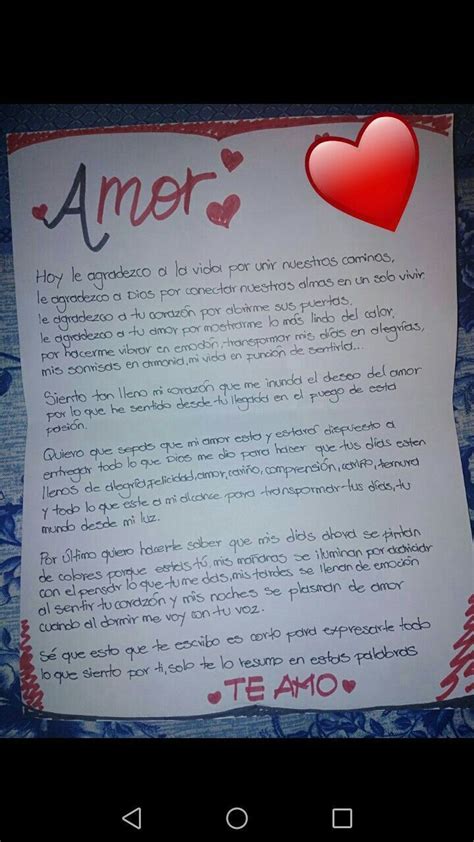 Amor
Hoy le agradezco a la vida por unir nuestros caminos,
le agradezco a Dios por conectar nuestras almas en un solo vivir
le agradezco a tu corazón por abrirme sus puertas.
le agradezco a tu amor por mostrarme lo más lindo del calor,
por hacerme vibrar en emoción, transformar mis días en alegrías,
mis sonrisas en armonia, mi vida en función de sentirla...
Siento tan lleno mi corazón que me inunda el deseo del amor
por lo que he sentido desde tu llegada en el fuego de esta
pasión.
Quiero que sepas que mi amor esta y estará dispuesto a
entregar todo lo que Dios me dio para hacer que tus días esten
llenos de alegría, felicidad, amor, cariño, comprensión, cariño, ternura
y todo lo que este a mi alcance para transformar tus días, tu
mundo desde mi luz.
Por último quiero hacerte saber que mis días ahora se pintan
de colores porque estas tú, mis mañanas se iluminan por
con el pensar lo que tu me das, mis tardes se llenan de emoción
al sentir tu corazón y mis noches se plasman de amor
cuando al dormir me voy con tu voz.
Sé que esto que te escribo es corto para expresarte todo
lo que siento por ti, solo te lo resumo en estas palabras
TE AMO